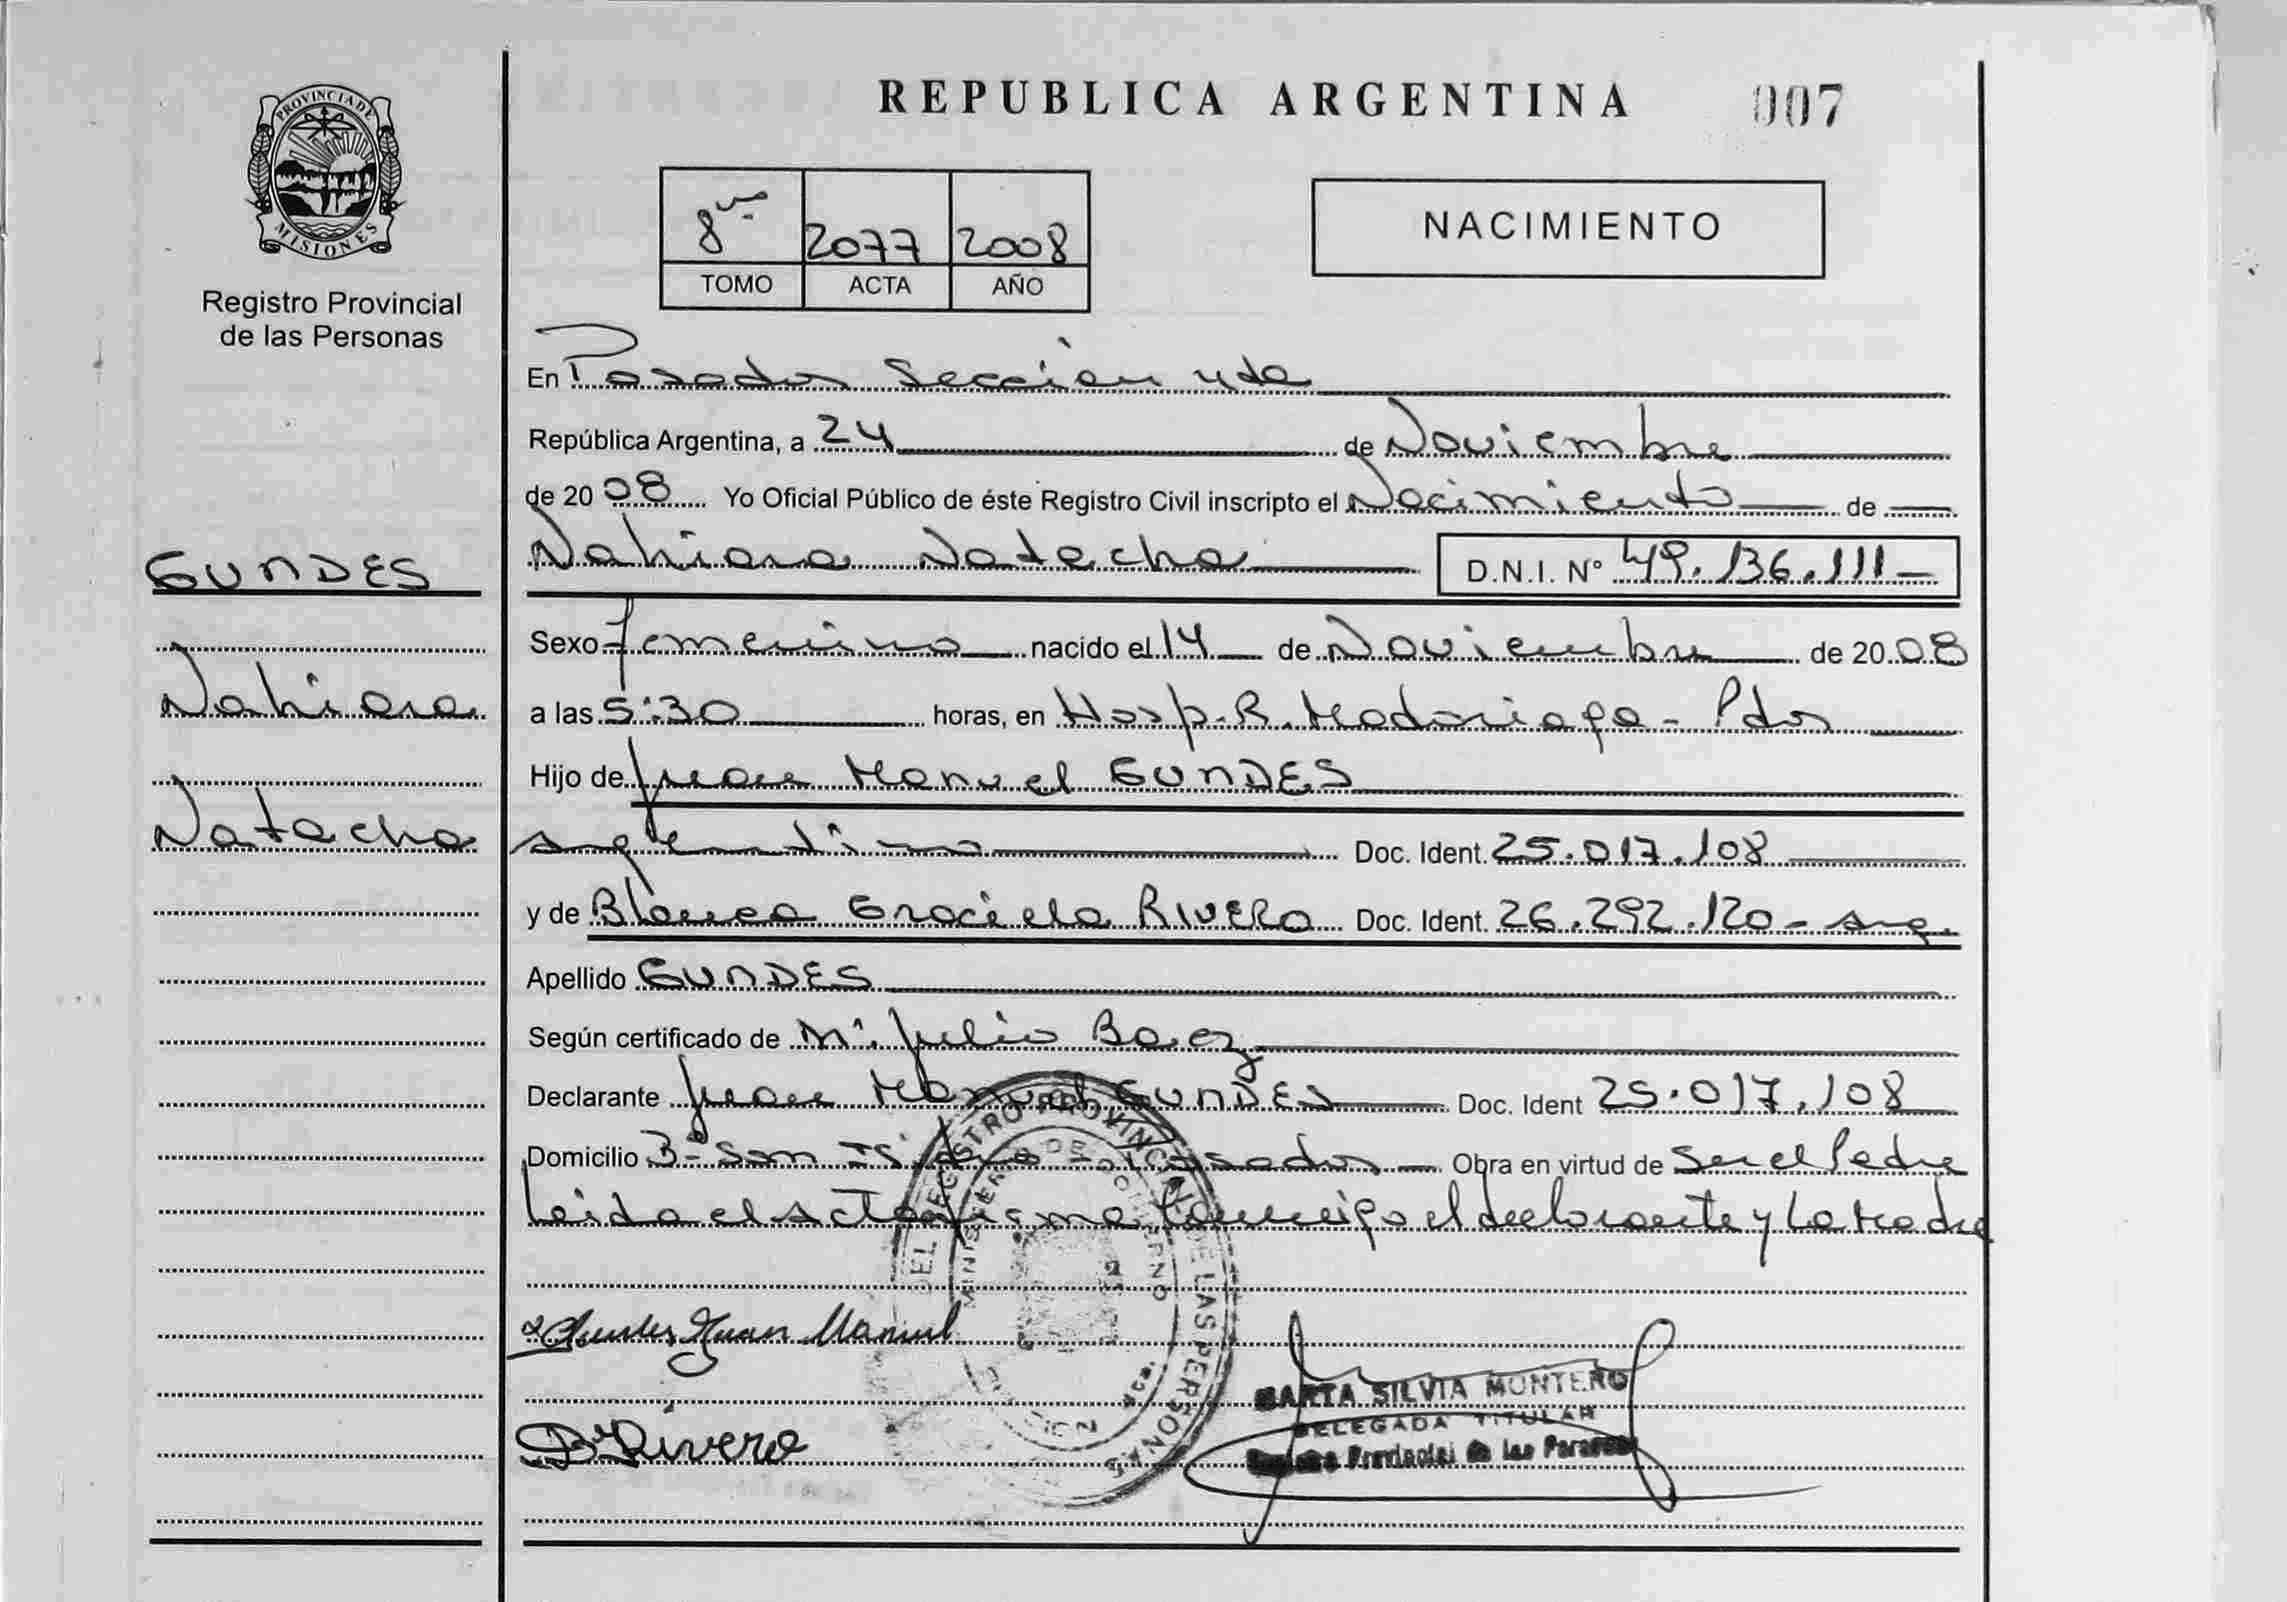 REPUBLICA ARGENTINA 007
PROVINCIA DE MISIONES
Registro Provincial
de las Personas
8vo 2077 2008
TOMO ACTA AÑO
NACIMIENTO
En Posadas Sección 4ta
República Argentina, a 24 de Noviembre
de 2008 Yo Oficial Público de éste Registro Civil inscripto el Nacimiento de
Nahiara Natacha D.N.I. Nº 49.136.111-
GUNDES
Nahiara
Natacha
Sexo femenino nacido el 14 de Noviembre de 2008
a las 5:30 horas, en Hosp. R. Madariaga - Pdas
Hijo de Juan Manuel GUNDES
argentino Doc. Ident. 25.017.108
y de Blanca Graciela RIVERO Doc. Ident. 26.292.120 - arg.
Apellido GUNDES
Según certificado de Julio Baez
Declarante Juan Manuel GUNDES Doc. Ident 25.017.108
Domicilio Bº San Isidro - Posadas Obra en virtud de Ser el Padre
Leída el Acta firma conmigo el declarante y La Madre
DEL REGISTRO PROVINCIAL DE LAS PERSONAS
MINISTERIO DE GOBIERNO
Juan Manuel
B Rivero
MARTA SILVIA MONTERO
DELEGADA TITULAR
Registro Provincial de las Personas